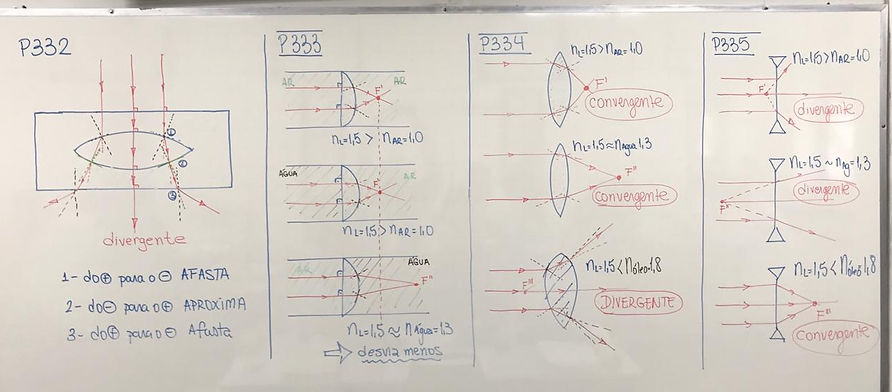 P332
① 
②
③
divergente
1- do ⊕ para o ⊖ AFASTA
2- do ⊖ para o ⊕ APROXIMA
3- do ⊕ para o ⊖ Afasta
P333
AR
AR
F'
nL=1,5 > nAR=1,0
ÁGUA
AR
F'
nL=1,5 > nAR=1,0
AR
ÁGUA
F"
nL=1,5 ≈ nÁgua=1,3
⇨ desvia menos
P334
nL=1,5 > nAR=1,0
F'
convergente
nL=1,5 ≈ nÁgua 1,3
F"
convergente
nL=1,5 < nóleo=1,8
F'''
DIVERGENTE
P335
nL=1,5 > nAR=1,0
F'
divergente
nL=1,5 ~ nAg=1,3
divergente
F"
nL=1,5 < nóleo=1,8
F'''
convergente